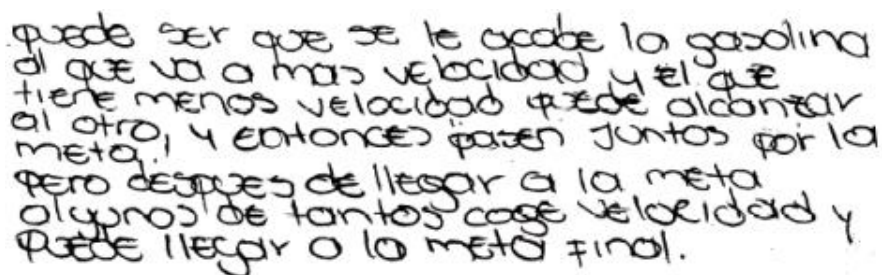 puede ser que se le acabe la gasolina
al que va a mas velocidad y el que
tiene menos velocidad puede alcanzar
al otro, y entonces pasen juntos por la
meta,
pero despues de llegar a la meta
algunos de tantos coge velocidad y
puede llegar a la meta final.